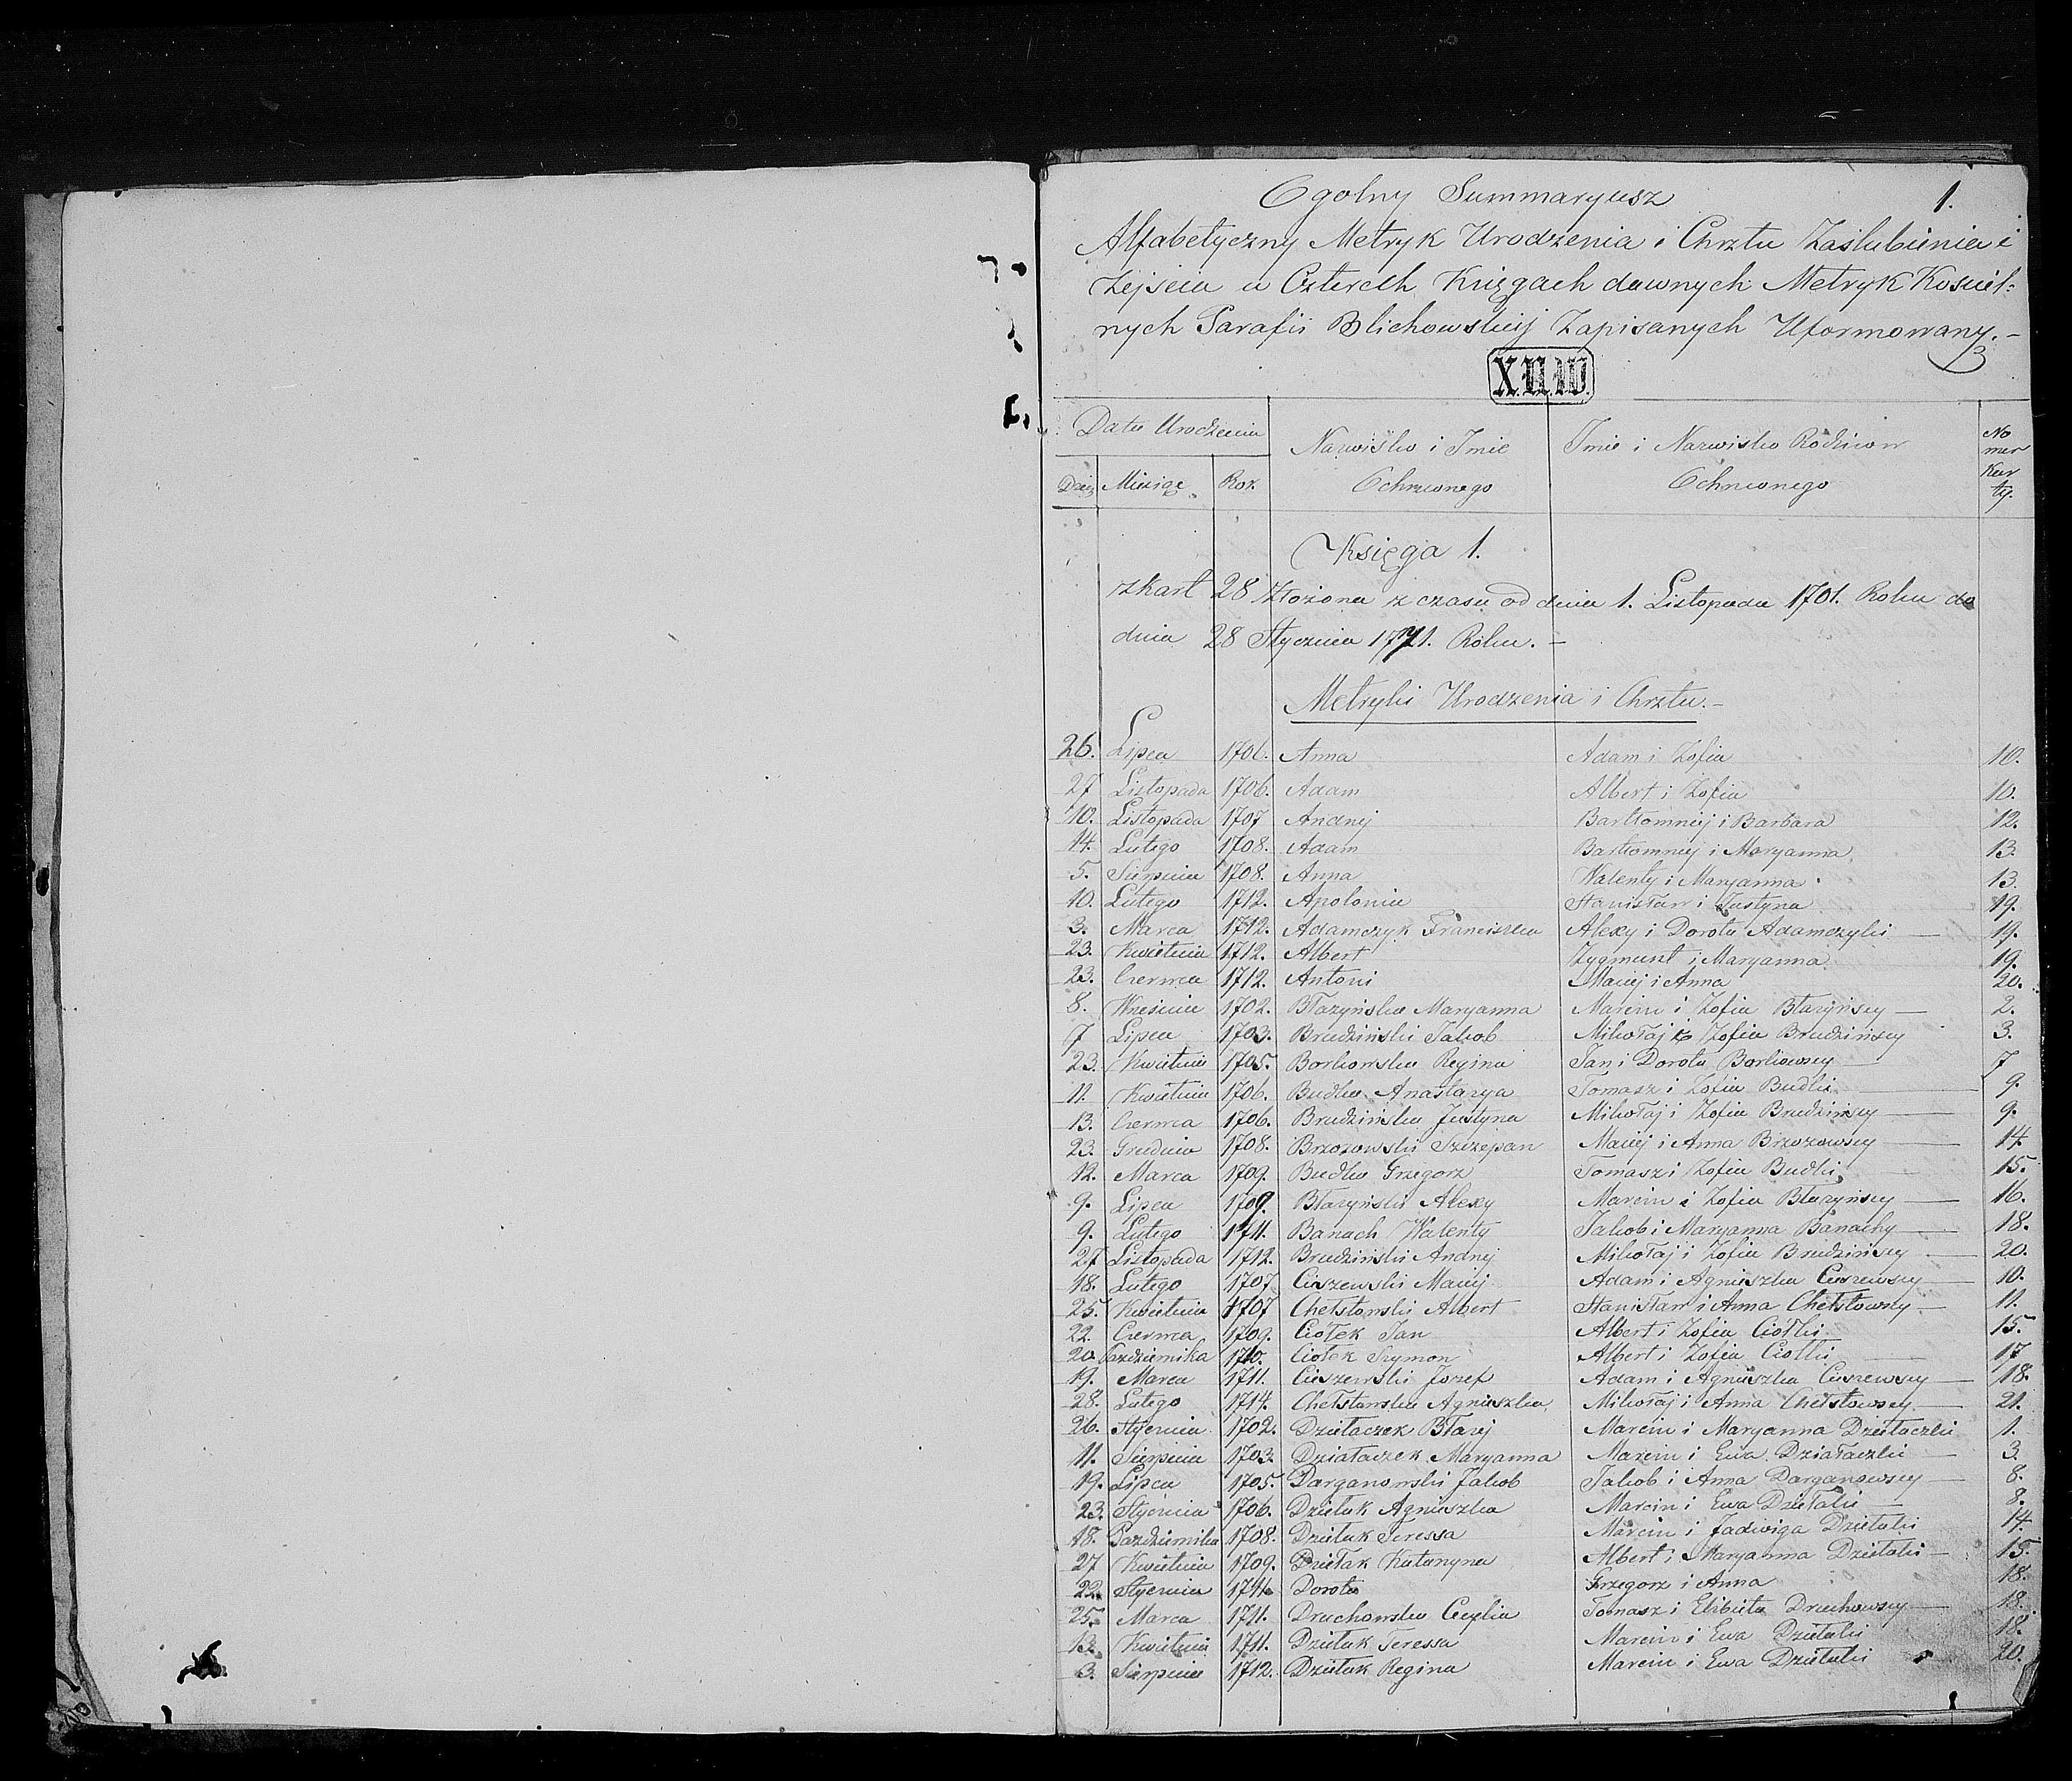 Ogolny Summaryusz 1.
Alfabetyczny Metryk Urodzenia i Chrztu Zaślubienia i
Zejścia w Czterech Księgach dawnych Metryk Kościel:
nych Parafii Blichowskiej Zapisanych Uformowany.
X.II.IV.
Data Urodzenia
Nazwisko i Imie Imie i Nazwisko Rodziców No
mer
Dzień Miesiąc Rok Ochrzconego Ochrzconego Kar
ty.
Księga 1.
z kart 28 złożona z czasu od dnia 1. Listopada 1701. Roku do
dnia 28 Stycznia 1721. Roku. –
Metryki Urodzenia i Chrztu. –
26. Lipca 1706. Anna Adam i Zofia 10.
27 Listopada 1706. Adam Albert i Zofia 10.
10. Listopada 1707 Andrzej Bartłomniej i Barbara 12.
14. Lutego 1708. Adam Bartłomniej i Maryanna 13.
5. Sierpnia 1708. Anna Walenty i Maryanna 13.
10. Lutego 1712. Apolonia Stanisław i Justyna 19.
3. Marca 1712. Adamczyk Franciszka Alexy i Dorota Adamczyki 19.
23. Kwietnia 1712. Albert Zygmunt i Maryanna 19.
23. Czerwca 1712. Antoni Maciej i Anna 20.
8. Wrześnie 1702. Błażyńska Maryanna Marcin i Zofia Błażyńscy 2.
7 Lipca 1703. Brudziński Jakob Mikołaj i Zofia Brudzińscy 3.
23. Kwietnia 1705. Borkowska Regina Jan i Dorota Borkowscy 7
11. Kwietnia 1706. Budka Anastazya Tomasz i Zofia Budki 9.
13. Czerwca 1706. Brudzińska Justyna Mikołaj i Zofia Brudzińscy 9.
23. Grudnia 1708. Brzozowski Szczepan Maciej i Anna Brzozowscy 14
12. Marca 1709. Budka Grzegorz Tomasz i Zofia Budki 15.
9. Lipca 1709. Błażyński Alexy Marcin i Zofia Błażyńscy 16.
9. Lutego 1711. Banach Walenty Jakob i Maryanna Banachy 18.
27 Listopada 1712. Brudziński Andrzej Mikołaj i Zofia Brudzińscy 20.
18. Lutego 1707. Ciszewski Maciej Adam i Agnieszka Ciszewscy 10.
25. Kwietnia 1707 Chełstowski Albert Stanisław i Anna Chełstowscy 11.
22. Czerwca 1709. Ciołek Jan Albert i Zofia Ciołki 15.
20. Października 1710. Ciołek Szymon Albert i Zofia Ciołki 17
19. Marca 1711. Ciszewski Jozef Adam i Agnieszka Ciszewscy 18.
28. Lutego 1714. Chełstowska Agnieszka Mikołaj i Anna Chełstowscy 21.
26. Stycznia 1702. Dziełaczek Błażej Marcin i Maryanna Dziełaczki 1.
11. Sierpnia 1703. Działaczek Maryanna Marcin i Ewa Działaczki 3.
19. Lipca 1705. Darganowski Jakob Jakob i Anna Darganowscy 8.
23. Stycznia 1706. Dziełak Agnieszka Marcin i Ewa Dziełaki 8.
18. Października 1708. Dziełak Teressa Marcin i Jadwiga Dziełaki 14.
27 Kwietnia 1709. Dziełak Katarzyna Albert i Maryanna Dziełaki 15.
22. Stycznia 1711. Dorota Grzegorz i Anna 18.
25. Marca 1711. Druchowska Cecylia Tomasz i Elżbieta Druchowscy 18.
13. Kwietnia 1711. Dziełak Teressa Marcin i Ewa Dziełaki 18.
3. Sierpnia 1712. Dziełak Regina Marcin i Ewa Dziełaki 20.